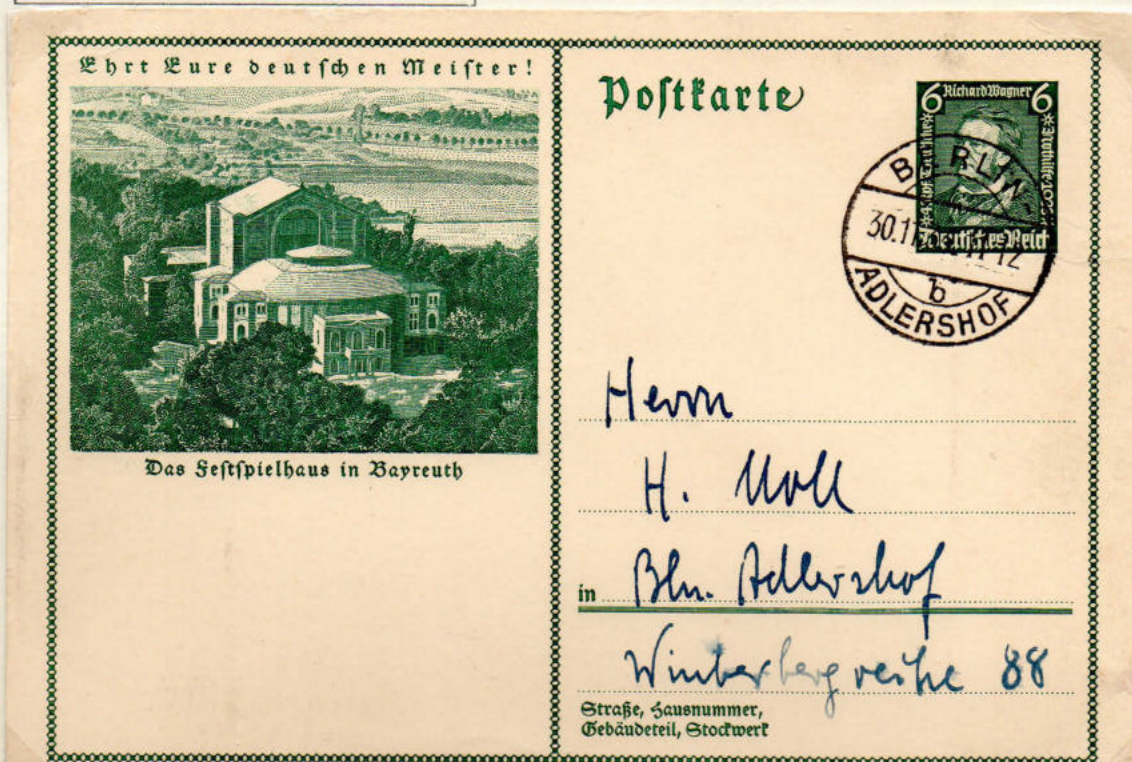 Ehrt Eure deutschen Meister!
Das Festspielhaus in Bayreuth
Postkarte
6 Richard Wagner 6
Deutsches Reich
BERLIN-
30.11 11-12
b
ADLERSHOF
Herrn
H. Noll
in Bln. Adlershof
Winterbergreihe 88
Straße, Hausnummer,
Gebäudeteil, Stockwerk